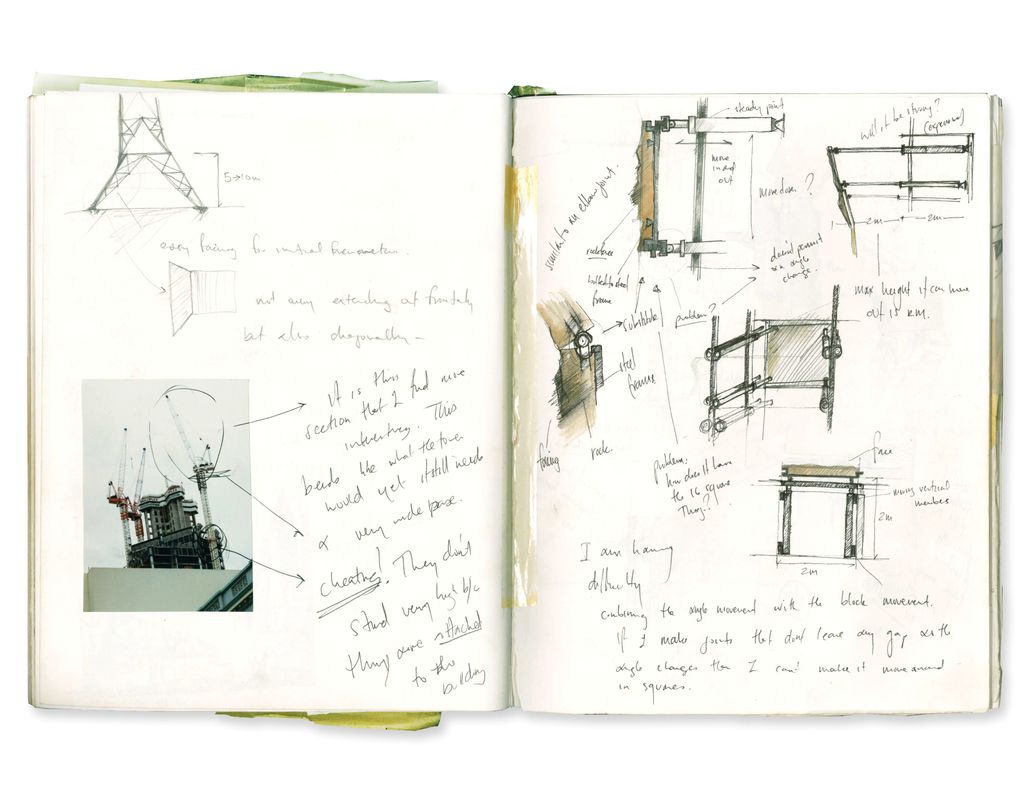 5→10m
not only extending out frontally
but also diagonally –
it is this
section that I find more
interesting. This
bends like what the tower
would yet it still needs
a very wide base.
cheating! They don't
stand very high b/c
they are attached
to the
building
steady point
move
in and
out
move down ?
similar to an elbow joint.
rockface
bolted to steel
frame
problem?
doesn't permit
an angle
change.
will it be strong?
(expensive)
2m
2m
max height it can move
out is 2m.
substitute
steel
frame
rock
problem:
how does it have
the 16 square
thing?
face
moving vertical
members
2m
2m
I am having
difficulty
combining the angle movement with the block movement.
If I make joints that don't leave any gap as the
angle changes then I can't make it move around
in squares.